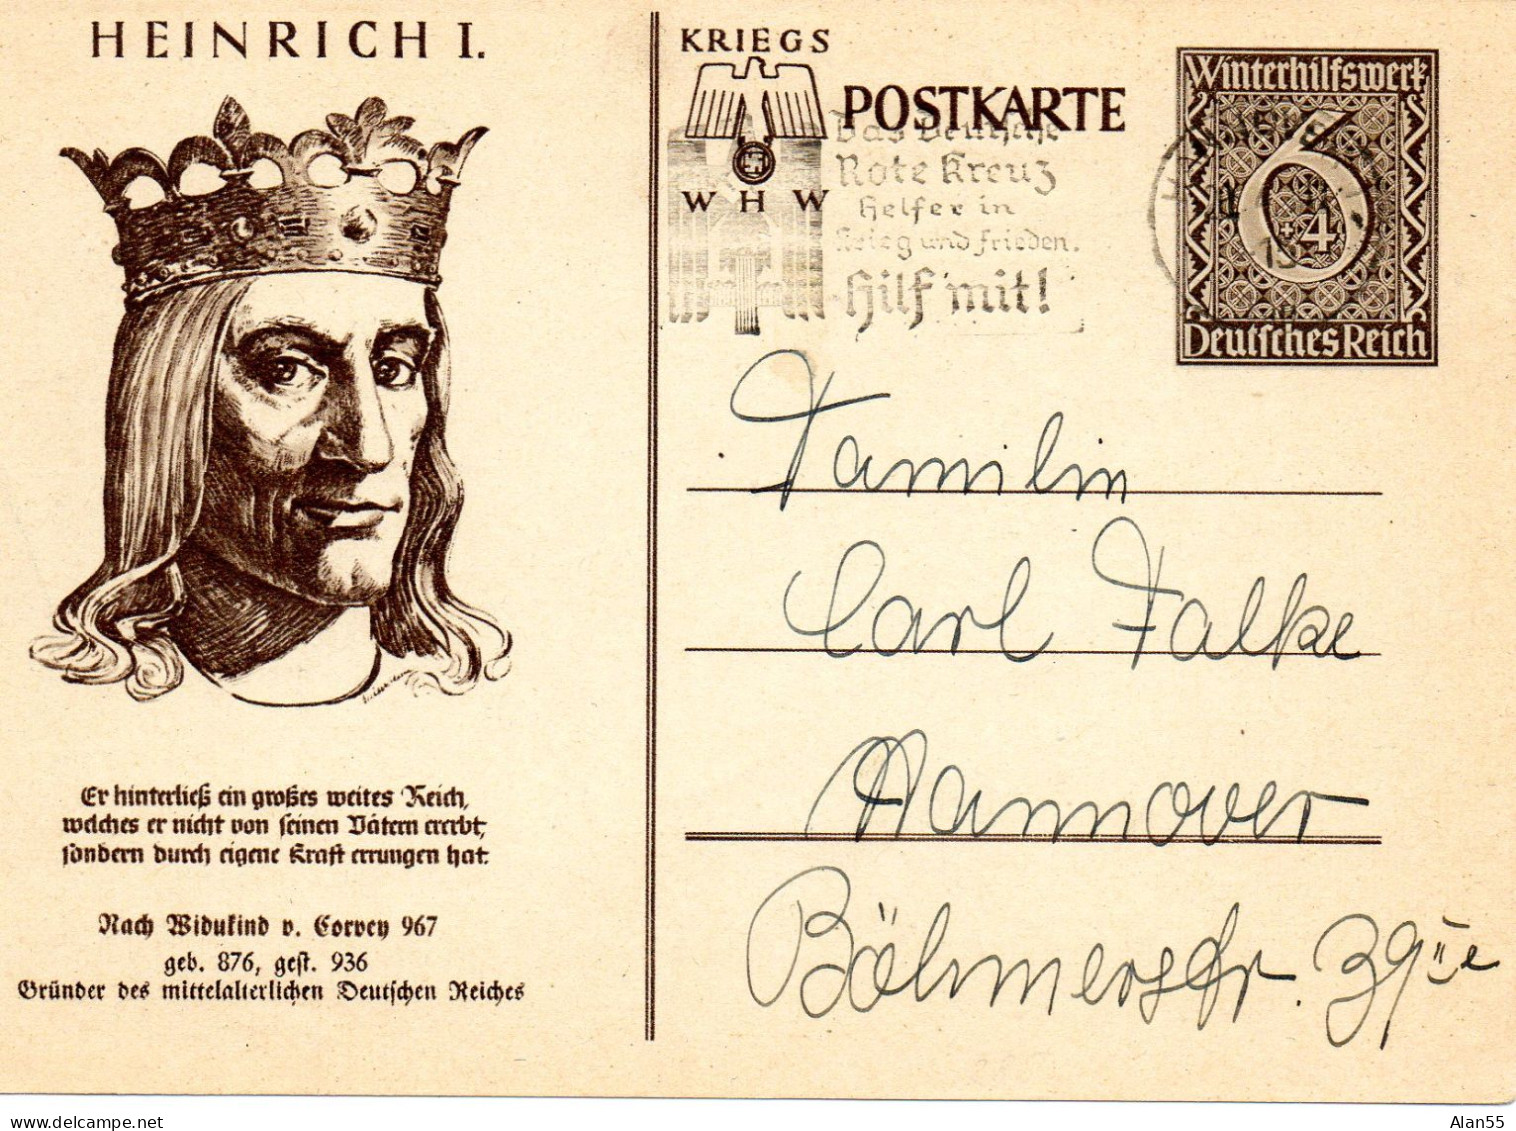 HEINRICH I.
Er hinterließ ein großes weites Reich,
welches er nicht von seinen Vätern ererbt,
sondern durch eigene Kraft errungen hat.
Nach Widukind v. Corvey 967
geb. 876, gest. 936
Gründer des mittelalterlichen Deutschen Reiches
KRIEGS
POSTKARTE
W H W
Das Deutsche
Rote Kreuz
Helfer in
Krieg und Frieden.
Hilf mit!
Winterhilfswerk
6
+4
Deutsches Reich
Familin
Carl Falke
Hannover
Böhmerstr. 39
Alan55